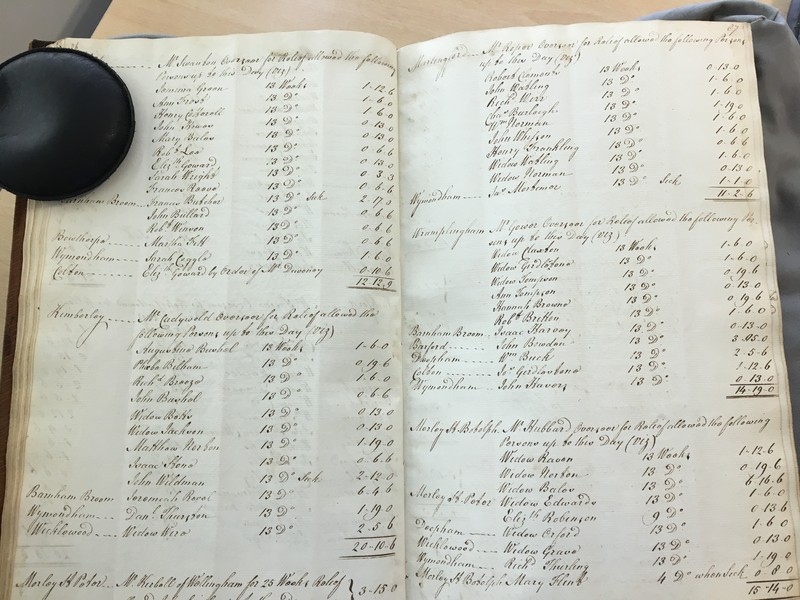 Mr Swanton Overseer for Relief allowed the following
Persons up to this Day (Viz)
Jemima Green 13 Weeks 1-12-6
Ann Frost 13 Do 1-6-0
Henry Cotterell 13 Do 1-6-0
John 13 Do 0-13-0
Mary Bales 13 Do 0-13-0
Robt Lea 13 Do 0-6-6
Elizth Goward 13 Do 0-13-0
Sarah Wright 13 Do 0-3-3
Frances Reeve 13 Do 0-6-6
Barnham Broom Francis Butcher 13 Do Sick 2-17-0
John Bullard 13 Do 0-6-6
Robt 13 Do 0-6-6
Bowthorpe Martha Kett 13 Do 0-6-6
Wymondham Sarah 13 Do 1-6-0
Colton Elizth Goward by Order of Mr 0-10-6
12-12-9
Kimberley Mr Ladyseld Overseer for Relief allowed the
following Persons up to this Day (Viz)
Augustine Bushel 13 Weeks 1-6-0
Phebe Bilham 13 Do 0-19-6
Richd Breeze 13 Do 1-6-0
John Bushel 13 Do 0-6-6
Widow Betts 13 Do 0-13-0
Widow Jackson 13 Do 0-13-0
Matthew Norton 13 Do 1-19-0
Isaac Stone 13 Do 0-6-6
John Wildman 13 Do Sick 2-12-0
Barnham Broom Jeremiah 13 Do 6-4-6
Wymondham Danl Thurston 13 Do 1-19-0
Wicklewood Widow 13 Do 2-5-6
20-10-6
Morley St Peter Mr Kerball of Wellingham for 25 Weeks Relief
3-15-0
Marlingford Mr Roper Overseer for Relief allowed the following Persons
up to this Day (Viz)
Robert Clements 13 Weeks 0-13-0
John Watling 13 Do 1-6-0
Richd 13 Do 1-6-0
Chas Burleigh 13 Do 1-19-0
Wm Norman 13 Do 1-6-0
John 13 Do 1-6-0
Henry Frankling 13 Do 0-6-6
Widow Watling 13 Do 1-6-0
Widow Norman 13 Do 0-13-0
Wymondham Jas Mortimer 13 Do Sick 1-1-0
11-2-6
Wramplingham Mr Gower Overseer for Relief allowed the following Per
sons up to this Day (Viz)
Widow Claxton 13 Weeks 1-6-0
Widow Girdlestone 13 Do 1-6-0
Widow Tompson 13 Do 0-19-6
Ann Tompson 13 Do 0-13-0
Hannah Browne 13 Do 0-19-6
Robt Britten 13 Do 1-6-0
Barnham Broom Isaac Harvey 13 Do 0-13-0
Barford John Bowden 13 Do
Deepham Wm Buck 13 Do 2-5-6
Colton Jos Girdlestone 13 Do 1-12-6
Wymondham John Havers 13 Do 0-13-0
14-19-0
Morley St Botolph Mr Hubbard Overseer for Relief allowed the following
Persons up to this Day (Viz)
Widow Raven 13 Weeks 1-12-6
Widow Norton 13 Do 0-19-6
Widow Bales 13 Do 6-16-6
Morley St Peter Widow Edwards 13 Do 1-6-0
Elizth Robinson 9 Do 0-13-6
Deepham Widow Orford 13 Do 1-6-0
Wicklewood Widow Grave 13 Do 0-13-0
Wymondham Richd Thurling 13 Do 1-19-0
Morley St Botolph Mary Flint 4 Do when Sick 0-8-0
15-14-0